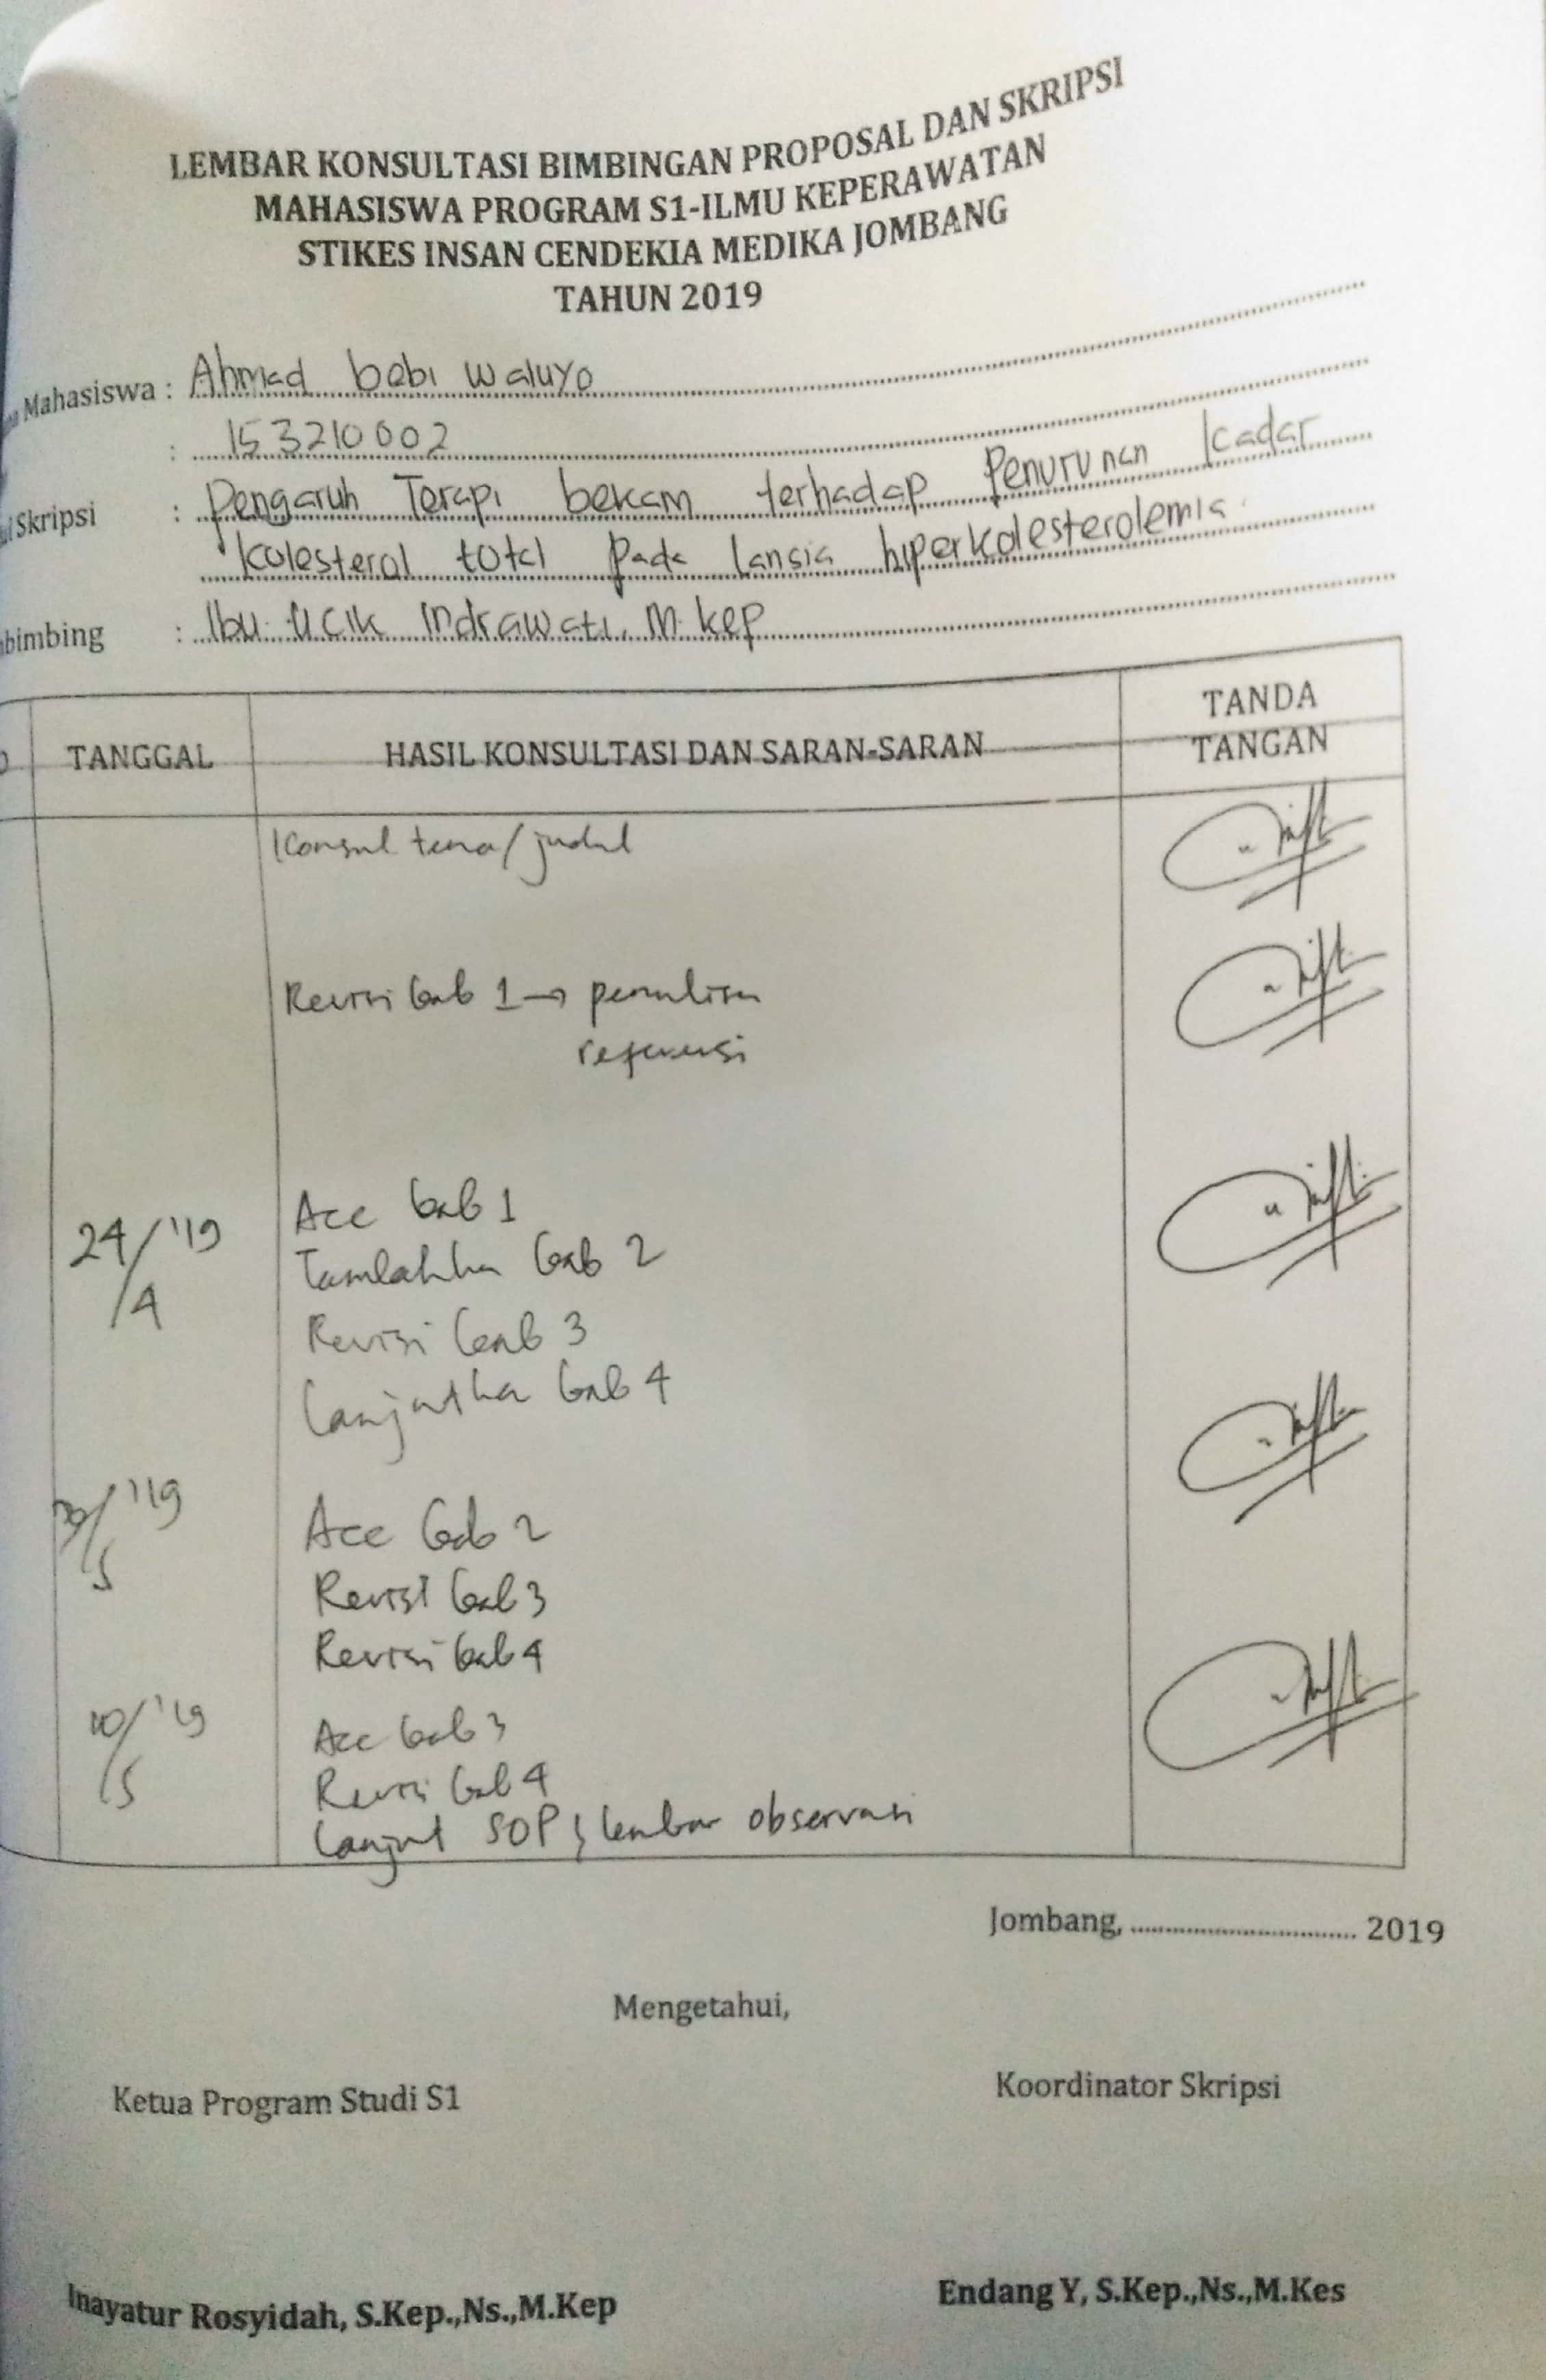 LEMBAR KONSULTASI BIMBINGAN PROPOSAL DAN SKRIPSI
MAHASISWA PROGRAM S1-ILMU KEPERAWATAN
STIKES INSAN CENDEKIA MEDIKA JOMBANG
TAHUN 2019
Mahasiswa : Ahmad bebi waluyo
: 153210002
Skripsi : Pengaruh Terapi bekam terhadap Penurunan kadar
kolesterol total pada lansia hiperkolesterolemia
bimbing : Ibu Ucik Indrawati, M.kep
TANGGAL HASIL KONSULTASI DAN SARAN-SARAN TANDA TANGAN
Konsul tema/judul
Revisi bab 1 → penulisan
referensi
24/4 '19 Acc bab 1
Tambahkan bab 2
Revisi bab 3
Lanjutkan bab 4
/5 '19 Acc bab 2
Revisi bab 3
Revisi bab 4
10/5 '19 Acc bab 3
Revisi bab 4
Lanjut SOP & lembar observasi
Jombang, ................................ 2019
Mengetahui,
Ketua Program Studi S1 Koordinator Skripsi
Inayatur Rosyidah, S.Kep.,Ns.,M.Kep Endang Y, S.Kep.,Ns.,M.Kes